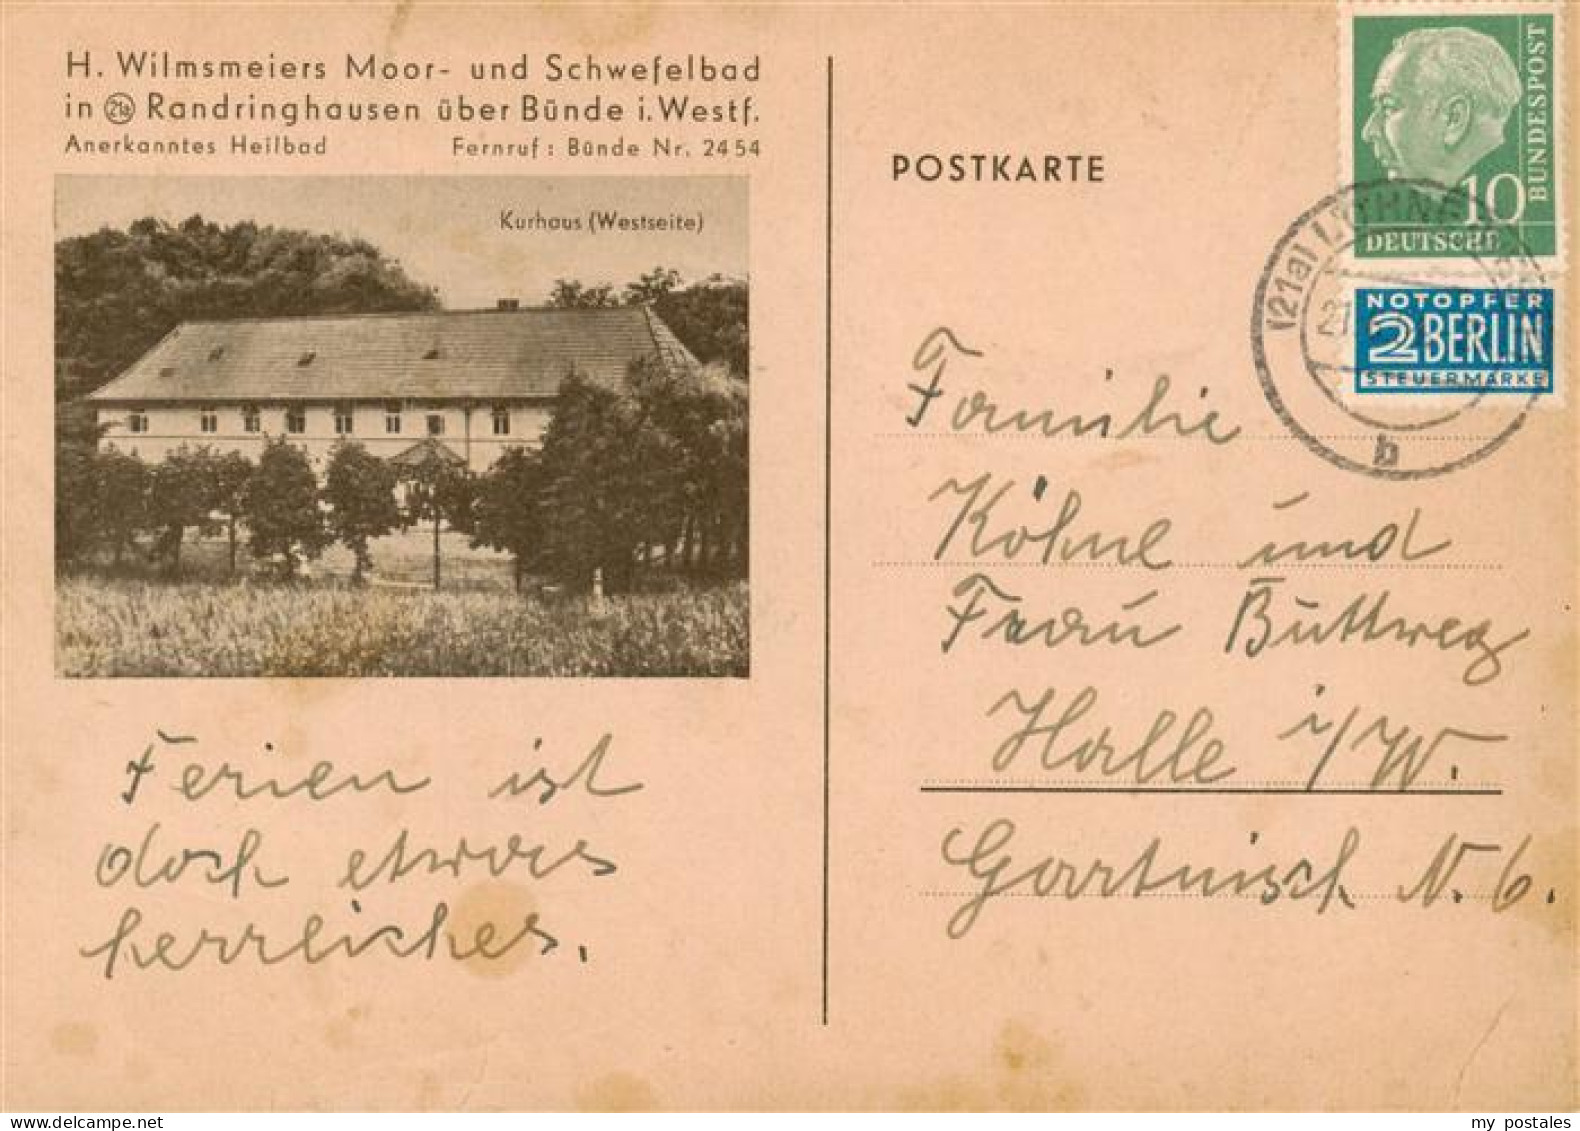 H. Wilmsmeiers Moor- und Schwefelbad
in 21a Randringhausen über Bünde i. Westf.
Anerkanntes Heilbad Fernruf: Bünde Nr. 2454
Kurhaus (Westseite)
Ferien ist
doch etwas
herrliches.
POSTKARTE
10
DEUTSCHE
BUNDESPOST
NOTOPFER
2 BERLIN
STEUERMARKE
(21a)
b
Familie
Köhne und
Frau Buttweg
Halle i/W.
Gartnisch N. 6.
my postales